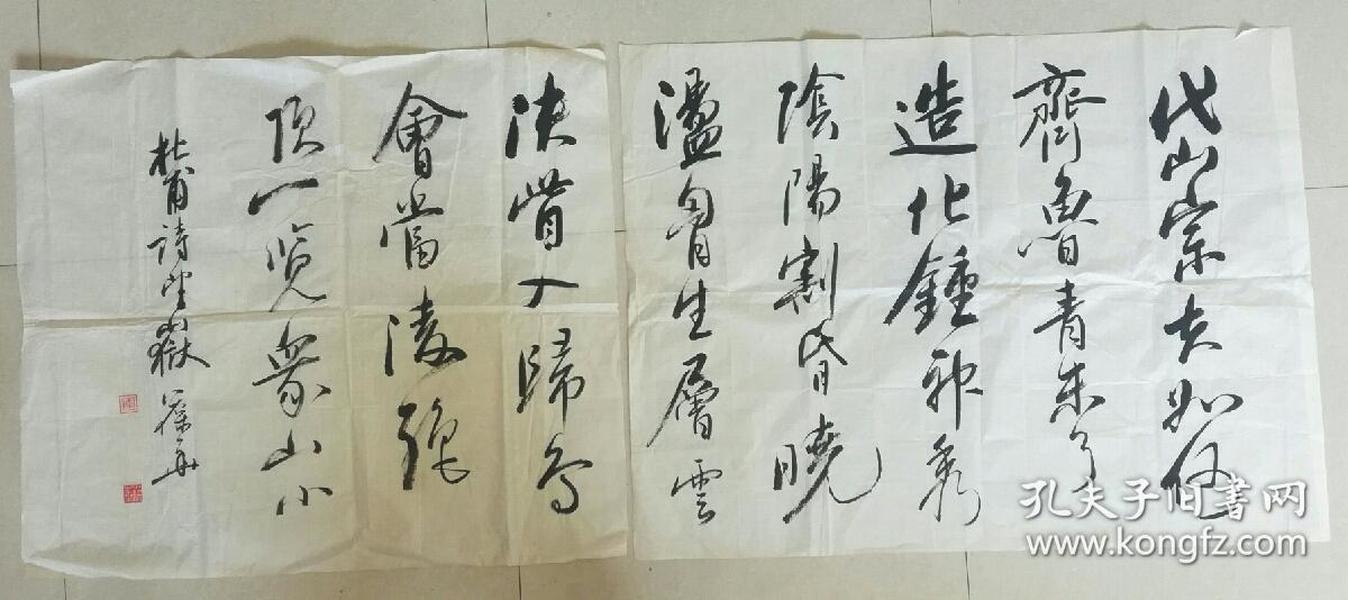 岱宗夫如何
齊魯青未了
造化鍾神秀
陰陽割昏曉
盪胷生層雲
決眥入歸鳥
會當凌絕
頂一览眾山小
杜甫詩望嶽
孔夫子旧书网
www.kongfz.com